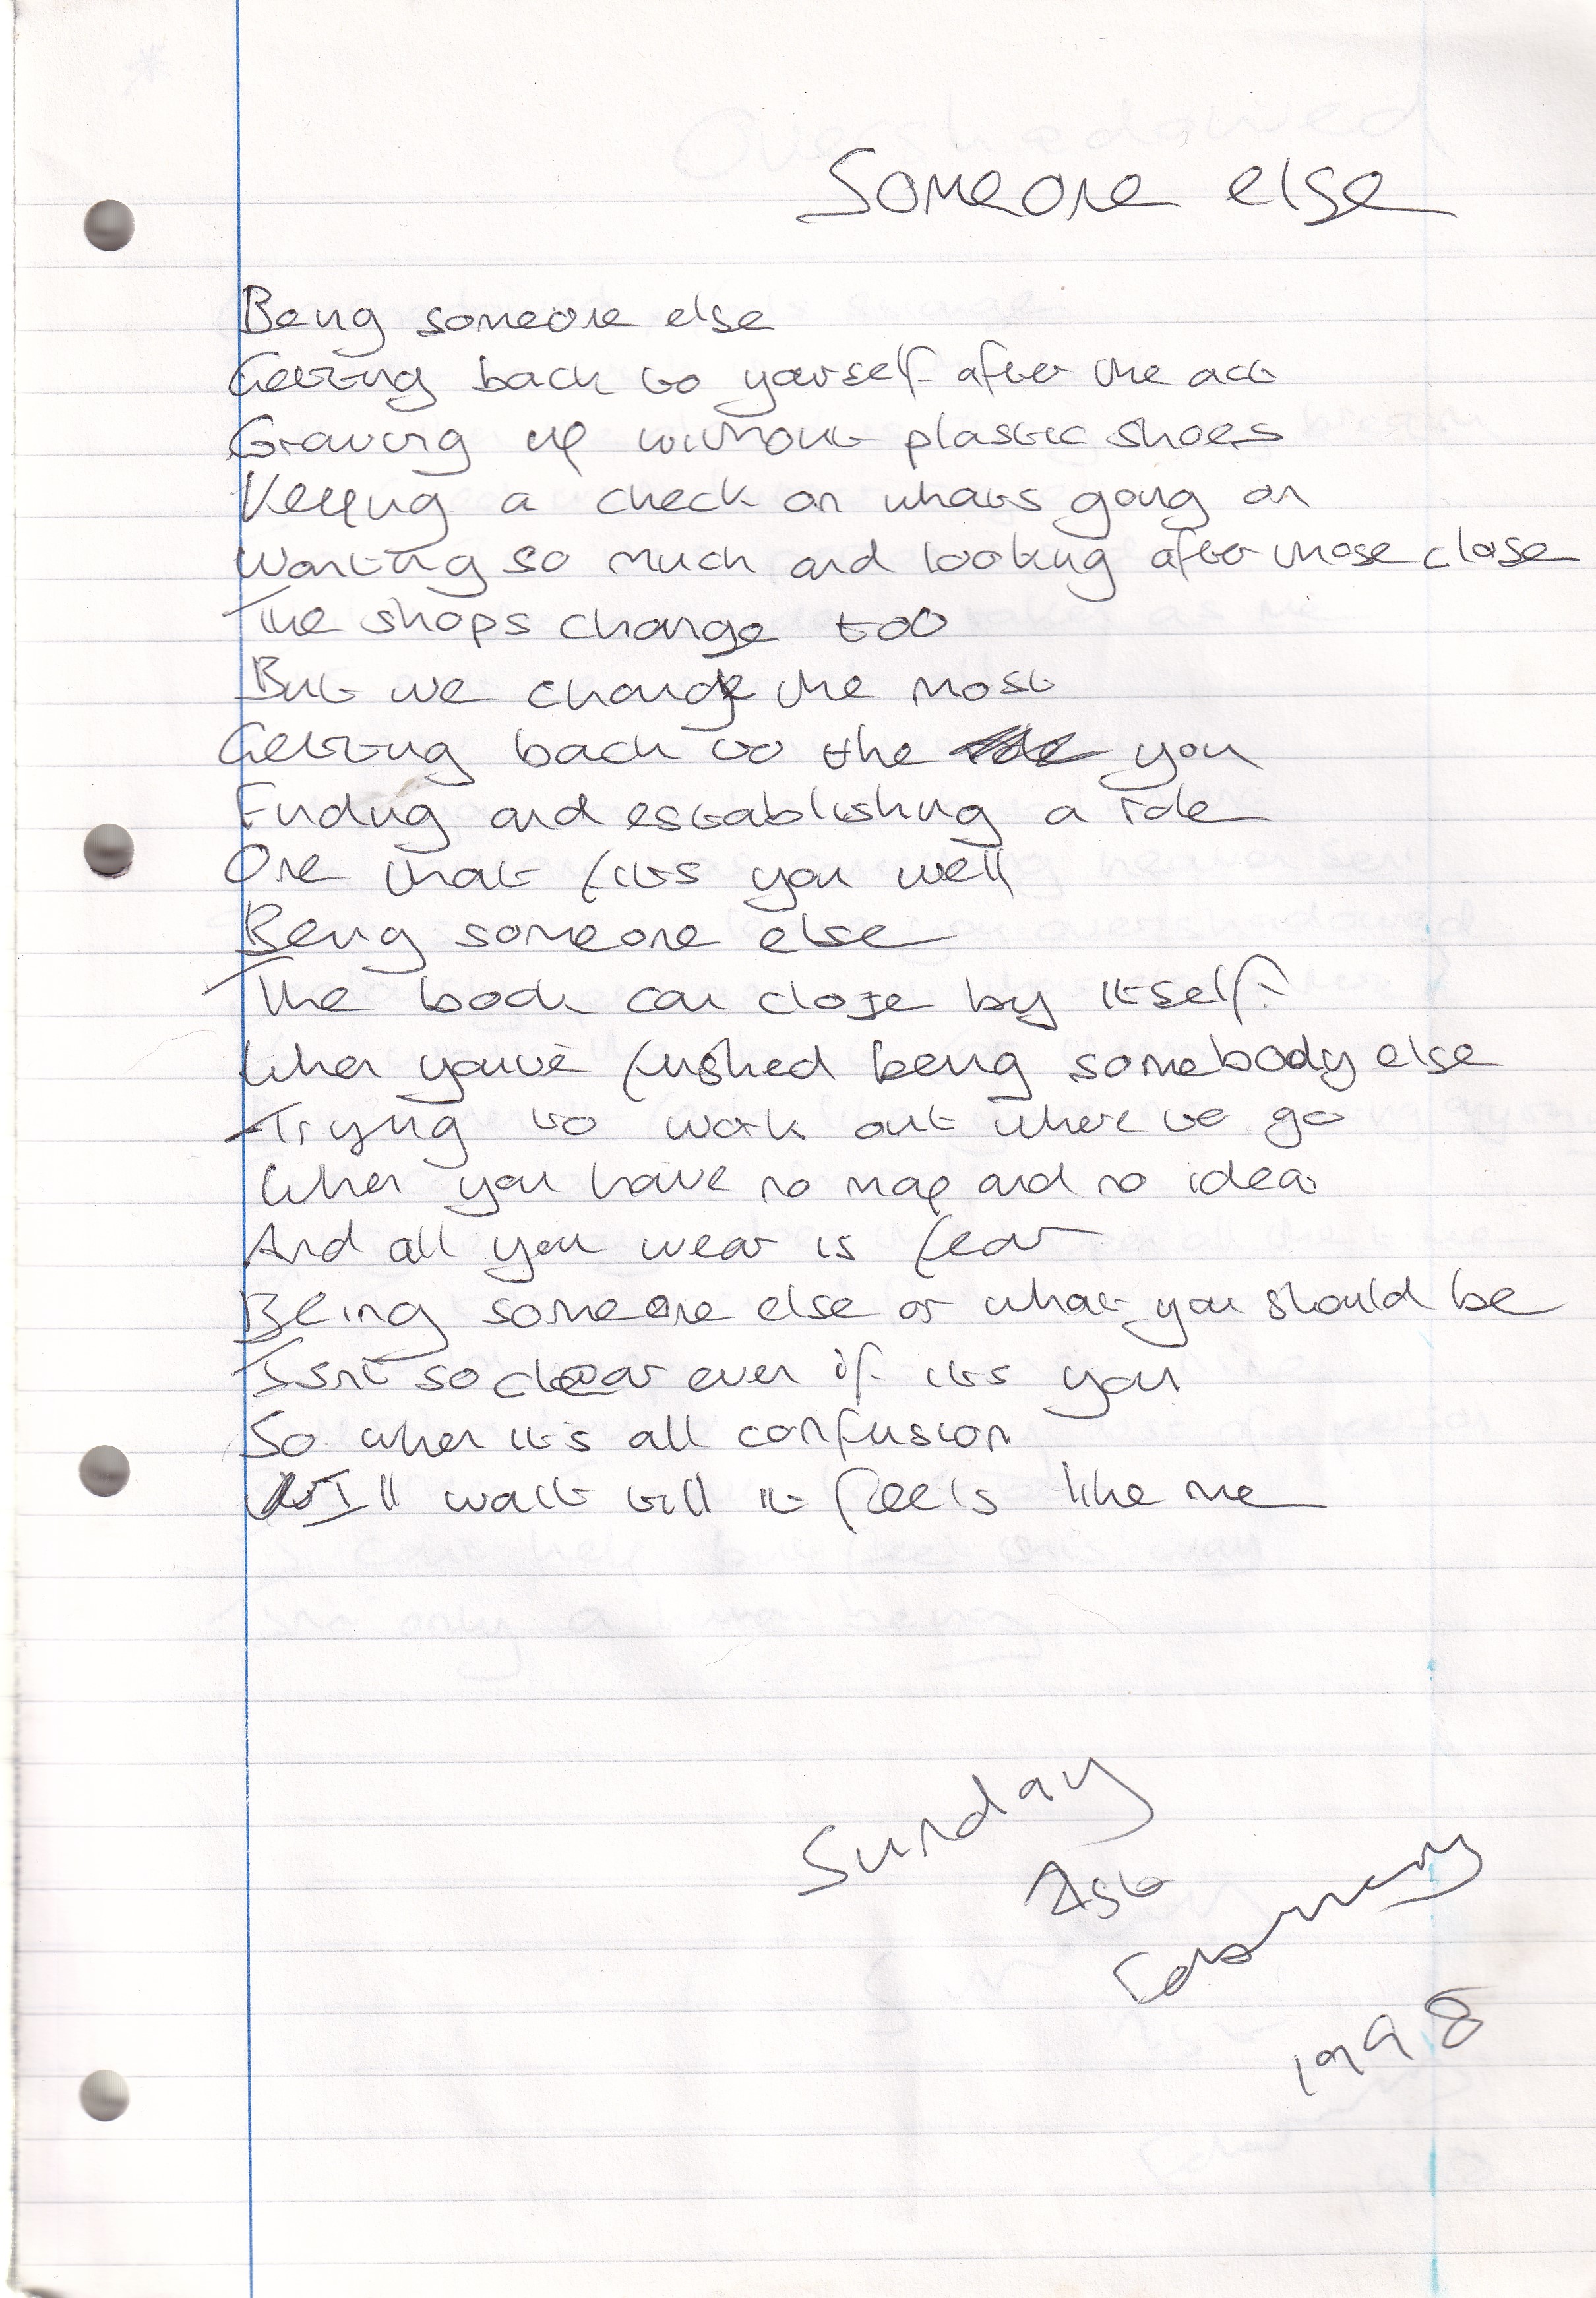 Someone else
Being someone else
Getting back to yourself after the act
Growing up without plastic shoes
Keeping a check on whats going on
Wanting so much and looking after those close
The shops change too
But we change the most
Getting back to the you
Finding and establishing a role
One that fits you well
Being someone else
The book can close by itself
When youve finished being somebody else
Trying to work out where to go
When you have no map and no idea
And all you wear is fear
Being someone else or what you should be
Isnt so clear even if its you
So when it's all confusion
I'll wait till it feels like me
Sunday
1st
February
1998